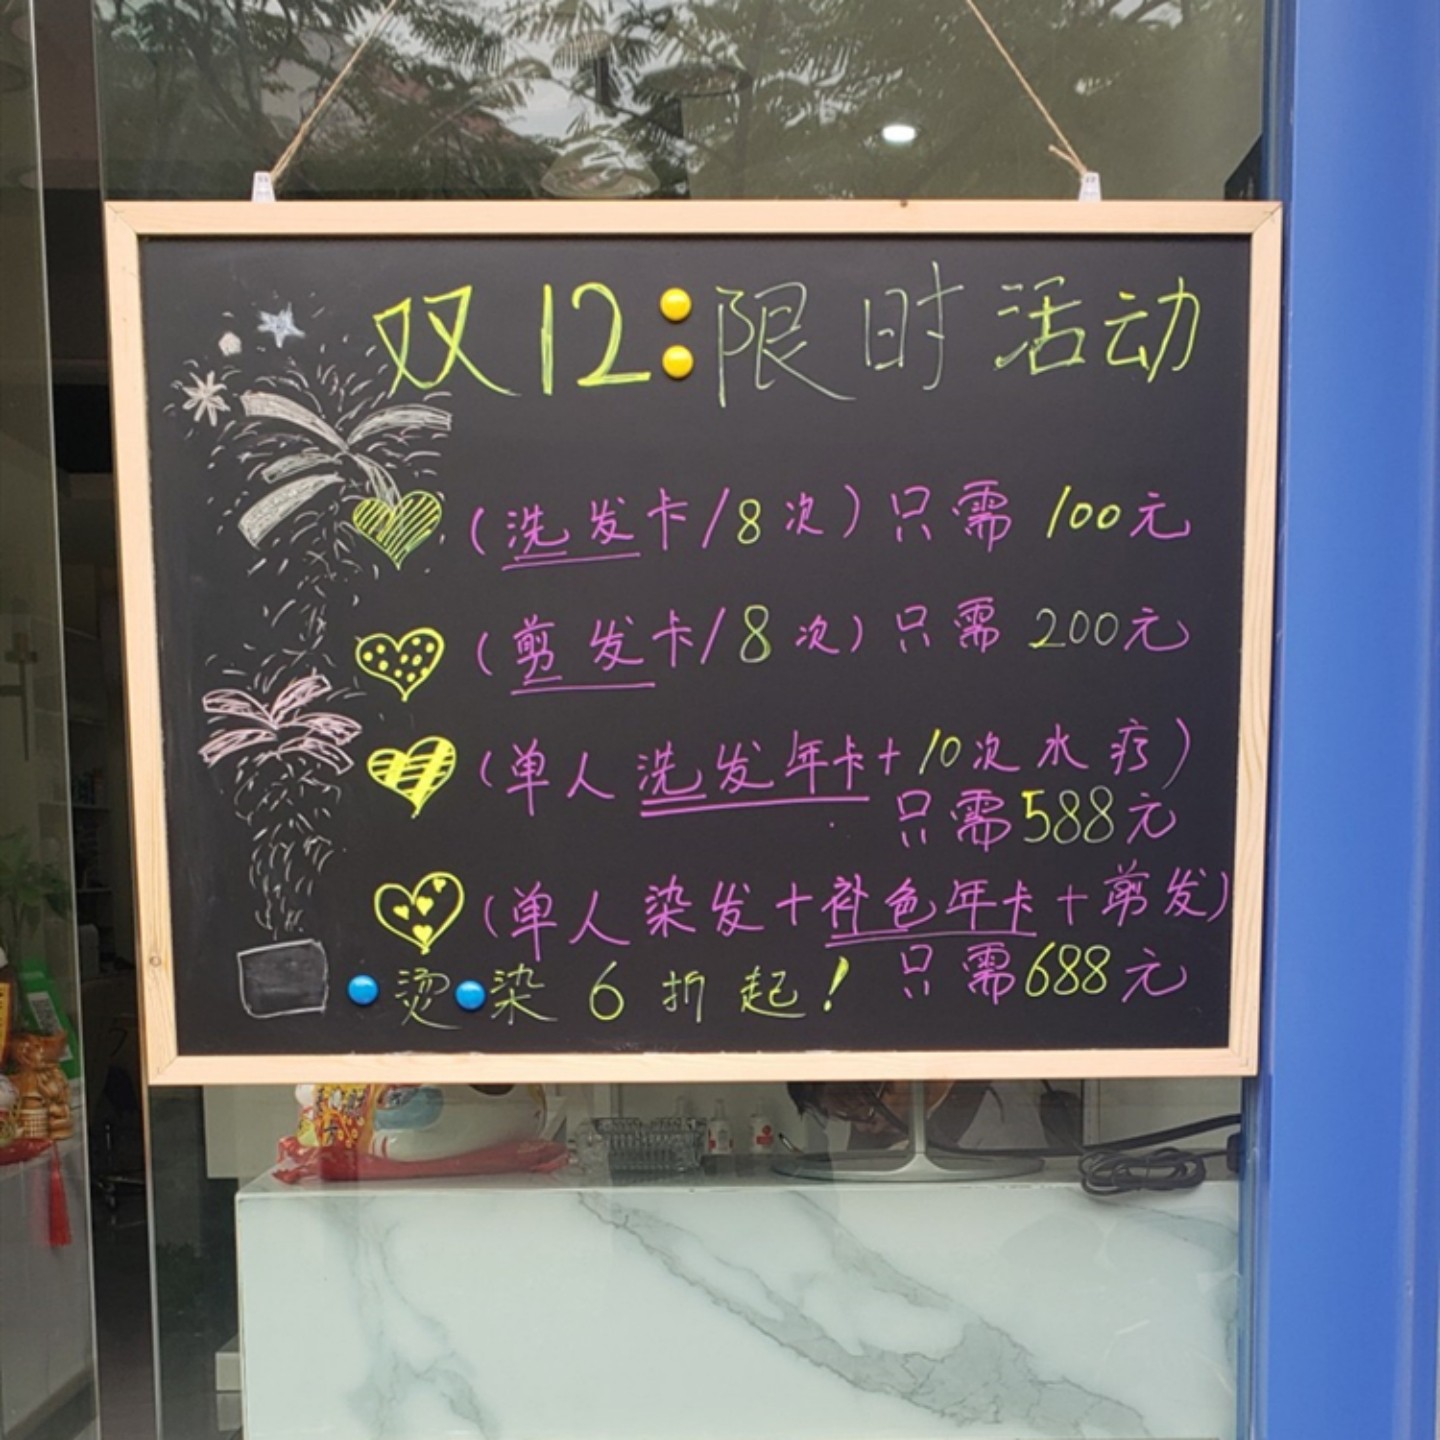 双12:限时活动
(洗发卡/8次)只需100元
(剪发卡/8次)只需200元
(单人洗发年卡+10次水疗)
只需588元
(单人染发+补色年卡+剪发)
只需688元
烫染6折起!